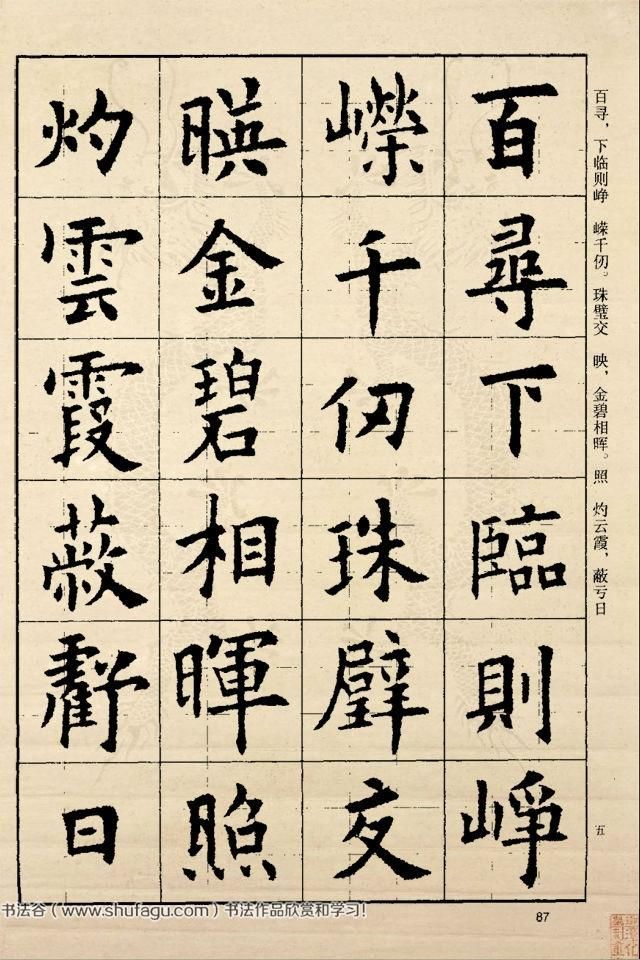 百尋下臨則崢
嶸千仞珠璧交
暎金碧相暉照
灼雲霞蔽虧日
百寻，下临则峥 嵘千仞。珠璧交 映，金碧相晖。照 灼云霞，蔽亏日
五
87
书法谷（www.shufagu.com）书法作品欣赏和学习！